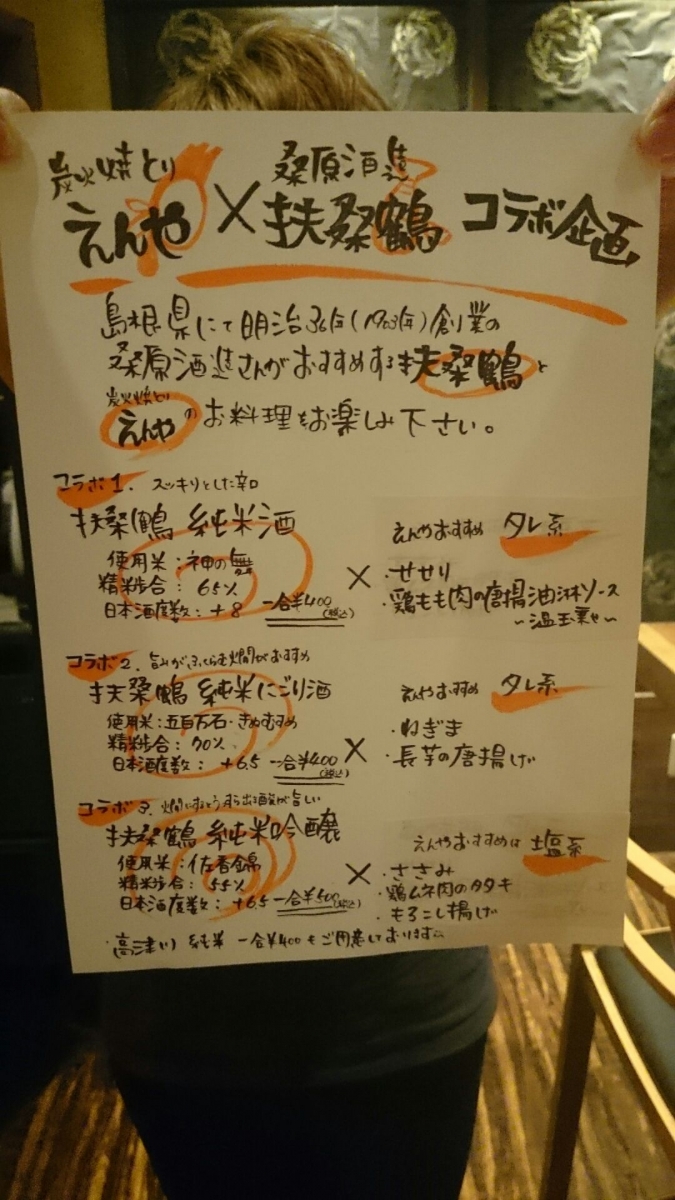 炭火焼とり 桑原酒造
えんや × 扶桑鶴 コラボ企画
島根県にて明治36年(1903年)創業の
桑原酒造さんがおすすめする扶桑鶴と
炭火焼とり
えんやのお料理をお楽しみ下さい。
コラボ1. スッキリとした辛口
扶桑鶴 純米酒
使用米:神の舞
精米歩合:65%
日本酒度数:+8 一合¥400(税込)
×
えんやおすすめ タレ系
・せせり
・鶏もも肉の唐揚油淋ソース
~温玉乗せ~
コラボ2. 旨みがふくらむ燗がおすすめ
扶桑鶴 純米にごり酒
使用米:五百万石・きぬむすめ
精米歩合:70%
日本酒度数:+6.5 一合¥400(税込)
×
えんやおすすめ タレ系
・ねぎま
・長芋の唐揚げ
コラボ3. 燗にするとうすら出る酸が旨い
扶桑鶴 純米吟醸
使用米:佐香錦
精米歩合:55%
日本酒度数:+6.5 一合¥500(税込)
×
えんやおすすめは 塩系
・ささみ
・鶏ムネ肉のタタキ
・もろこし揚げ
・高津川 純米 一合¥400もご用意しております